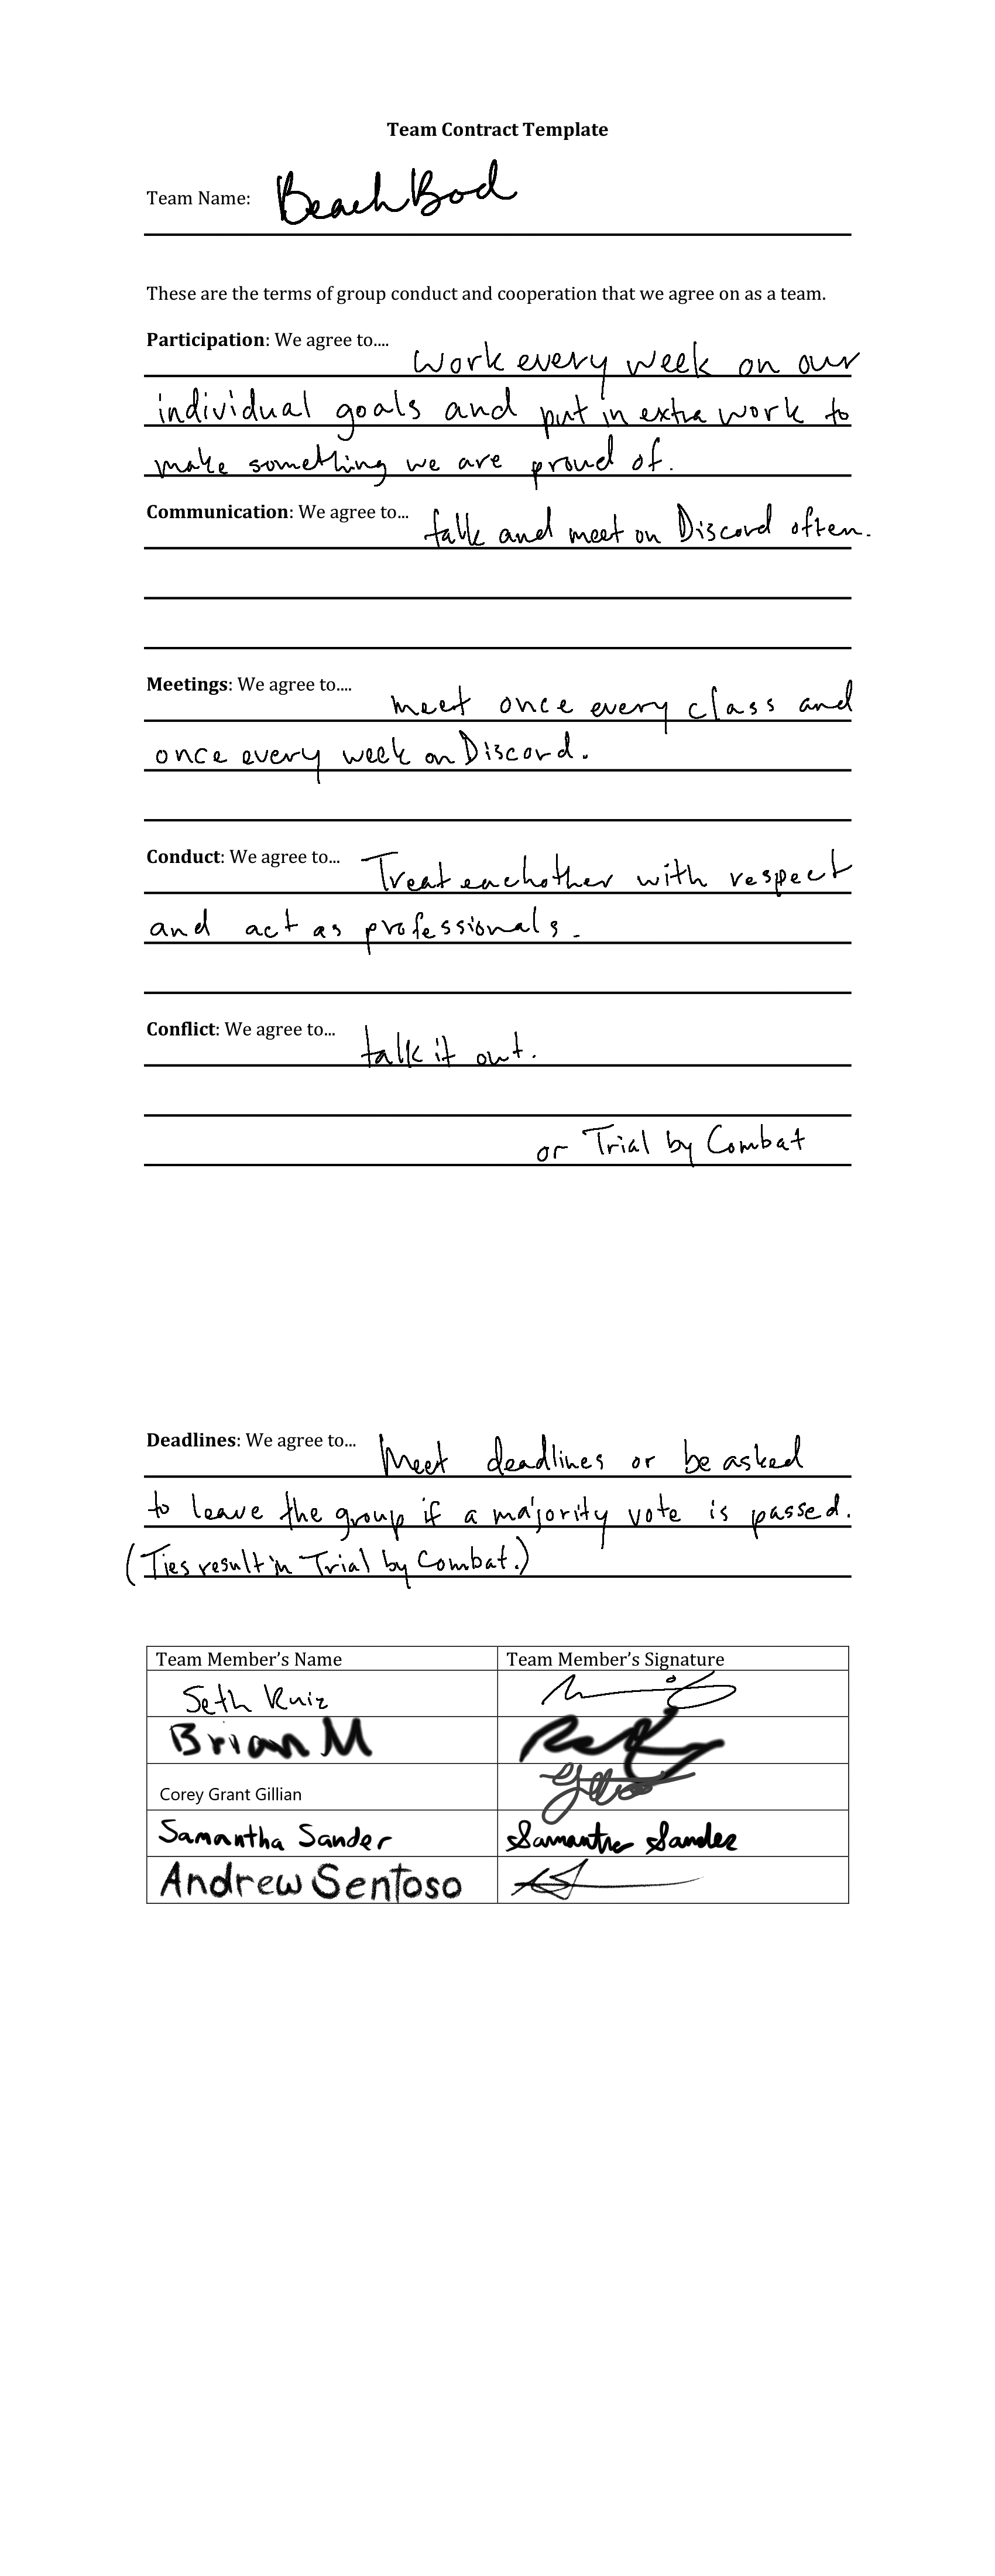 Team Contract Template
Team Name: BeachBod
These are the terms of group conduct and cooperation that we agree on as a team.
Participation: We agree to.... work every week on our
individual goals and put in extra work to
make something we are proud of.
Communication: We agree to... talk and meet on Discord often.
Meetings: We agree to.... meet once every class and
once every week on Discord.
Conduct: We agree to... Treat eachother with respect
and act as professionals.
Conflict: We agree to... talk it out.
or Trial by Combat
Deadlines: We agree to... Meet deadlines or be asked
to leave the group if a majority vote is passed.
(Ties result in Trial by Combat.)
Team Member's Name Team Member's Signature
Seth Ruiz
Brian M
Corey Grant Gillian
Samantha Sander Samantha Sander
Andrew Sentoso